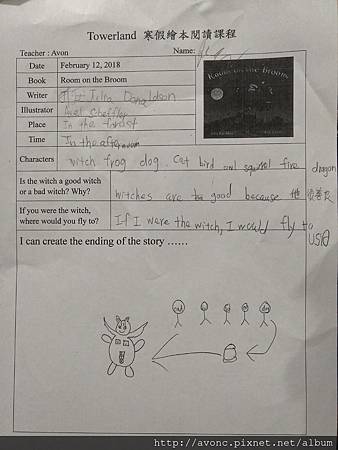 Towerland 寒假繪本閱讀課程
Teacher : Avon
Name:
Date February 12, 2018
Book Room on the Broom
Room on the Broom
Writer Julia Donaldson
Illustrator Axel Scheffler
Place In the
Time In the
Characters witch frog dog. cat bird and fire dragon
Is the witch a good witch or a bad witch? Why?
witches are the good because 他 很善良
If you were the witch, where would you fly to?
If I were the witch, I would fly to USA
I can create the ending of the story ……
http://avonc.pixnet.net/album